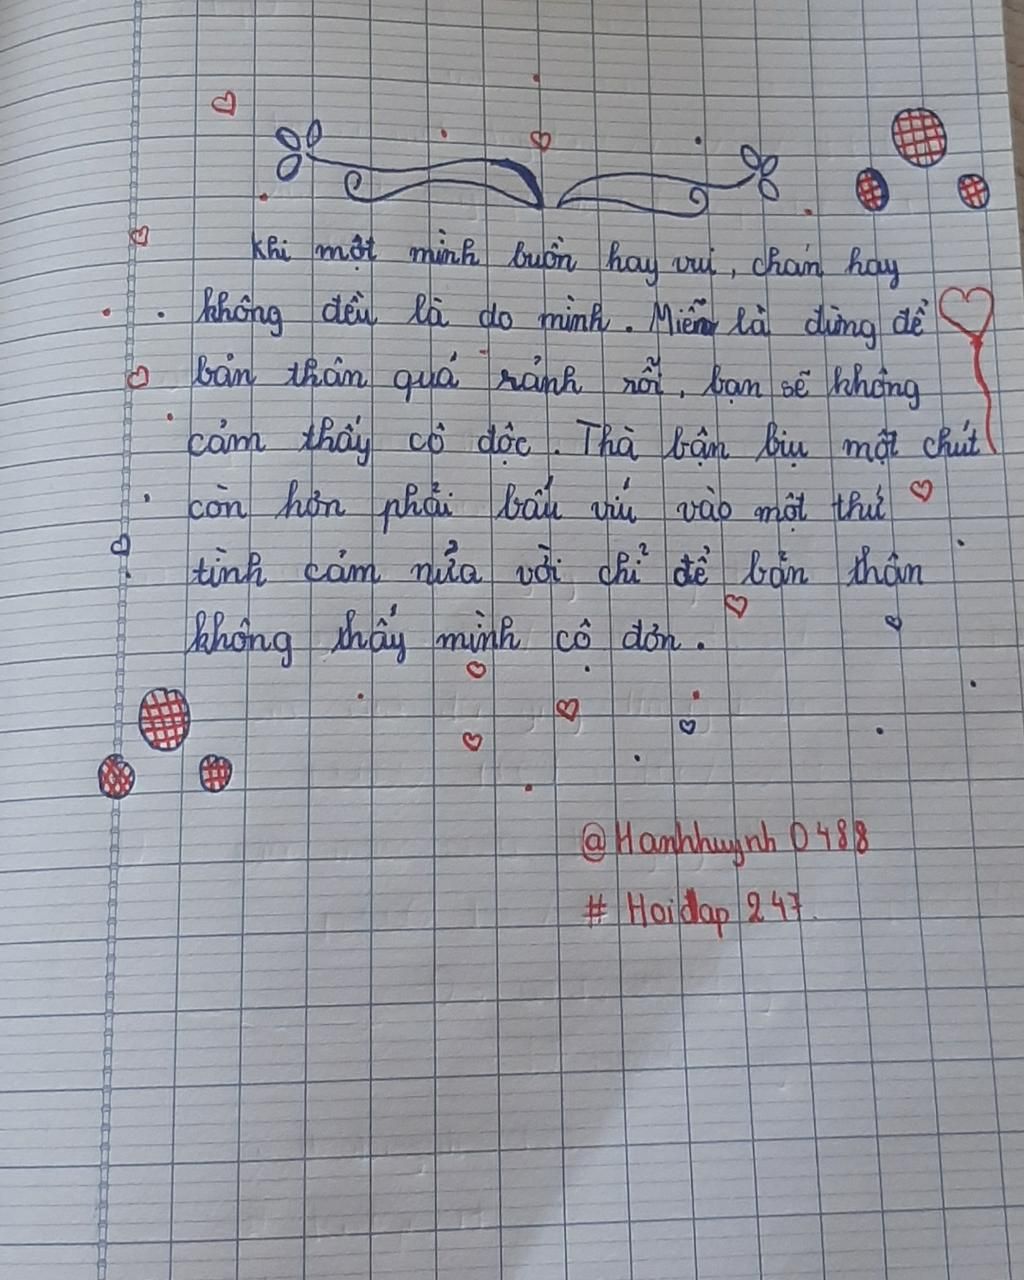 Khi một mình buồn hay vui, chán hay
không đều là do mình. Miễn là đừng để
bản thân quá rảnh rỗi, bạn sẽ không
cảm thấy cô độc. Thà bận bịu một chút
còn hơn phải bấu víu vào một thứ
tình cảm nửa vời chỉ để bản thân
không thấy mình cô đơn.
@Hanhhuynh0488
# Hoidap 247.